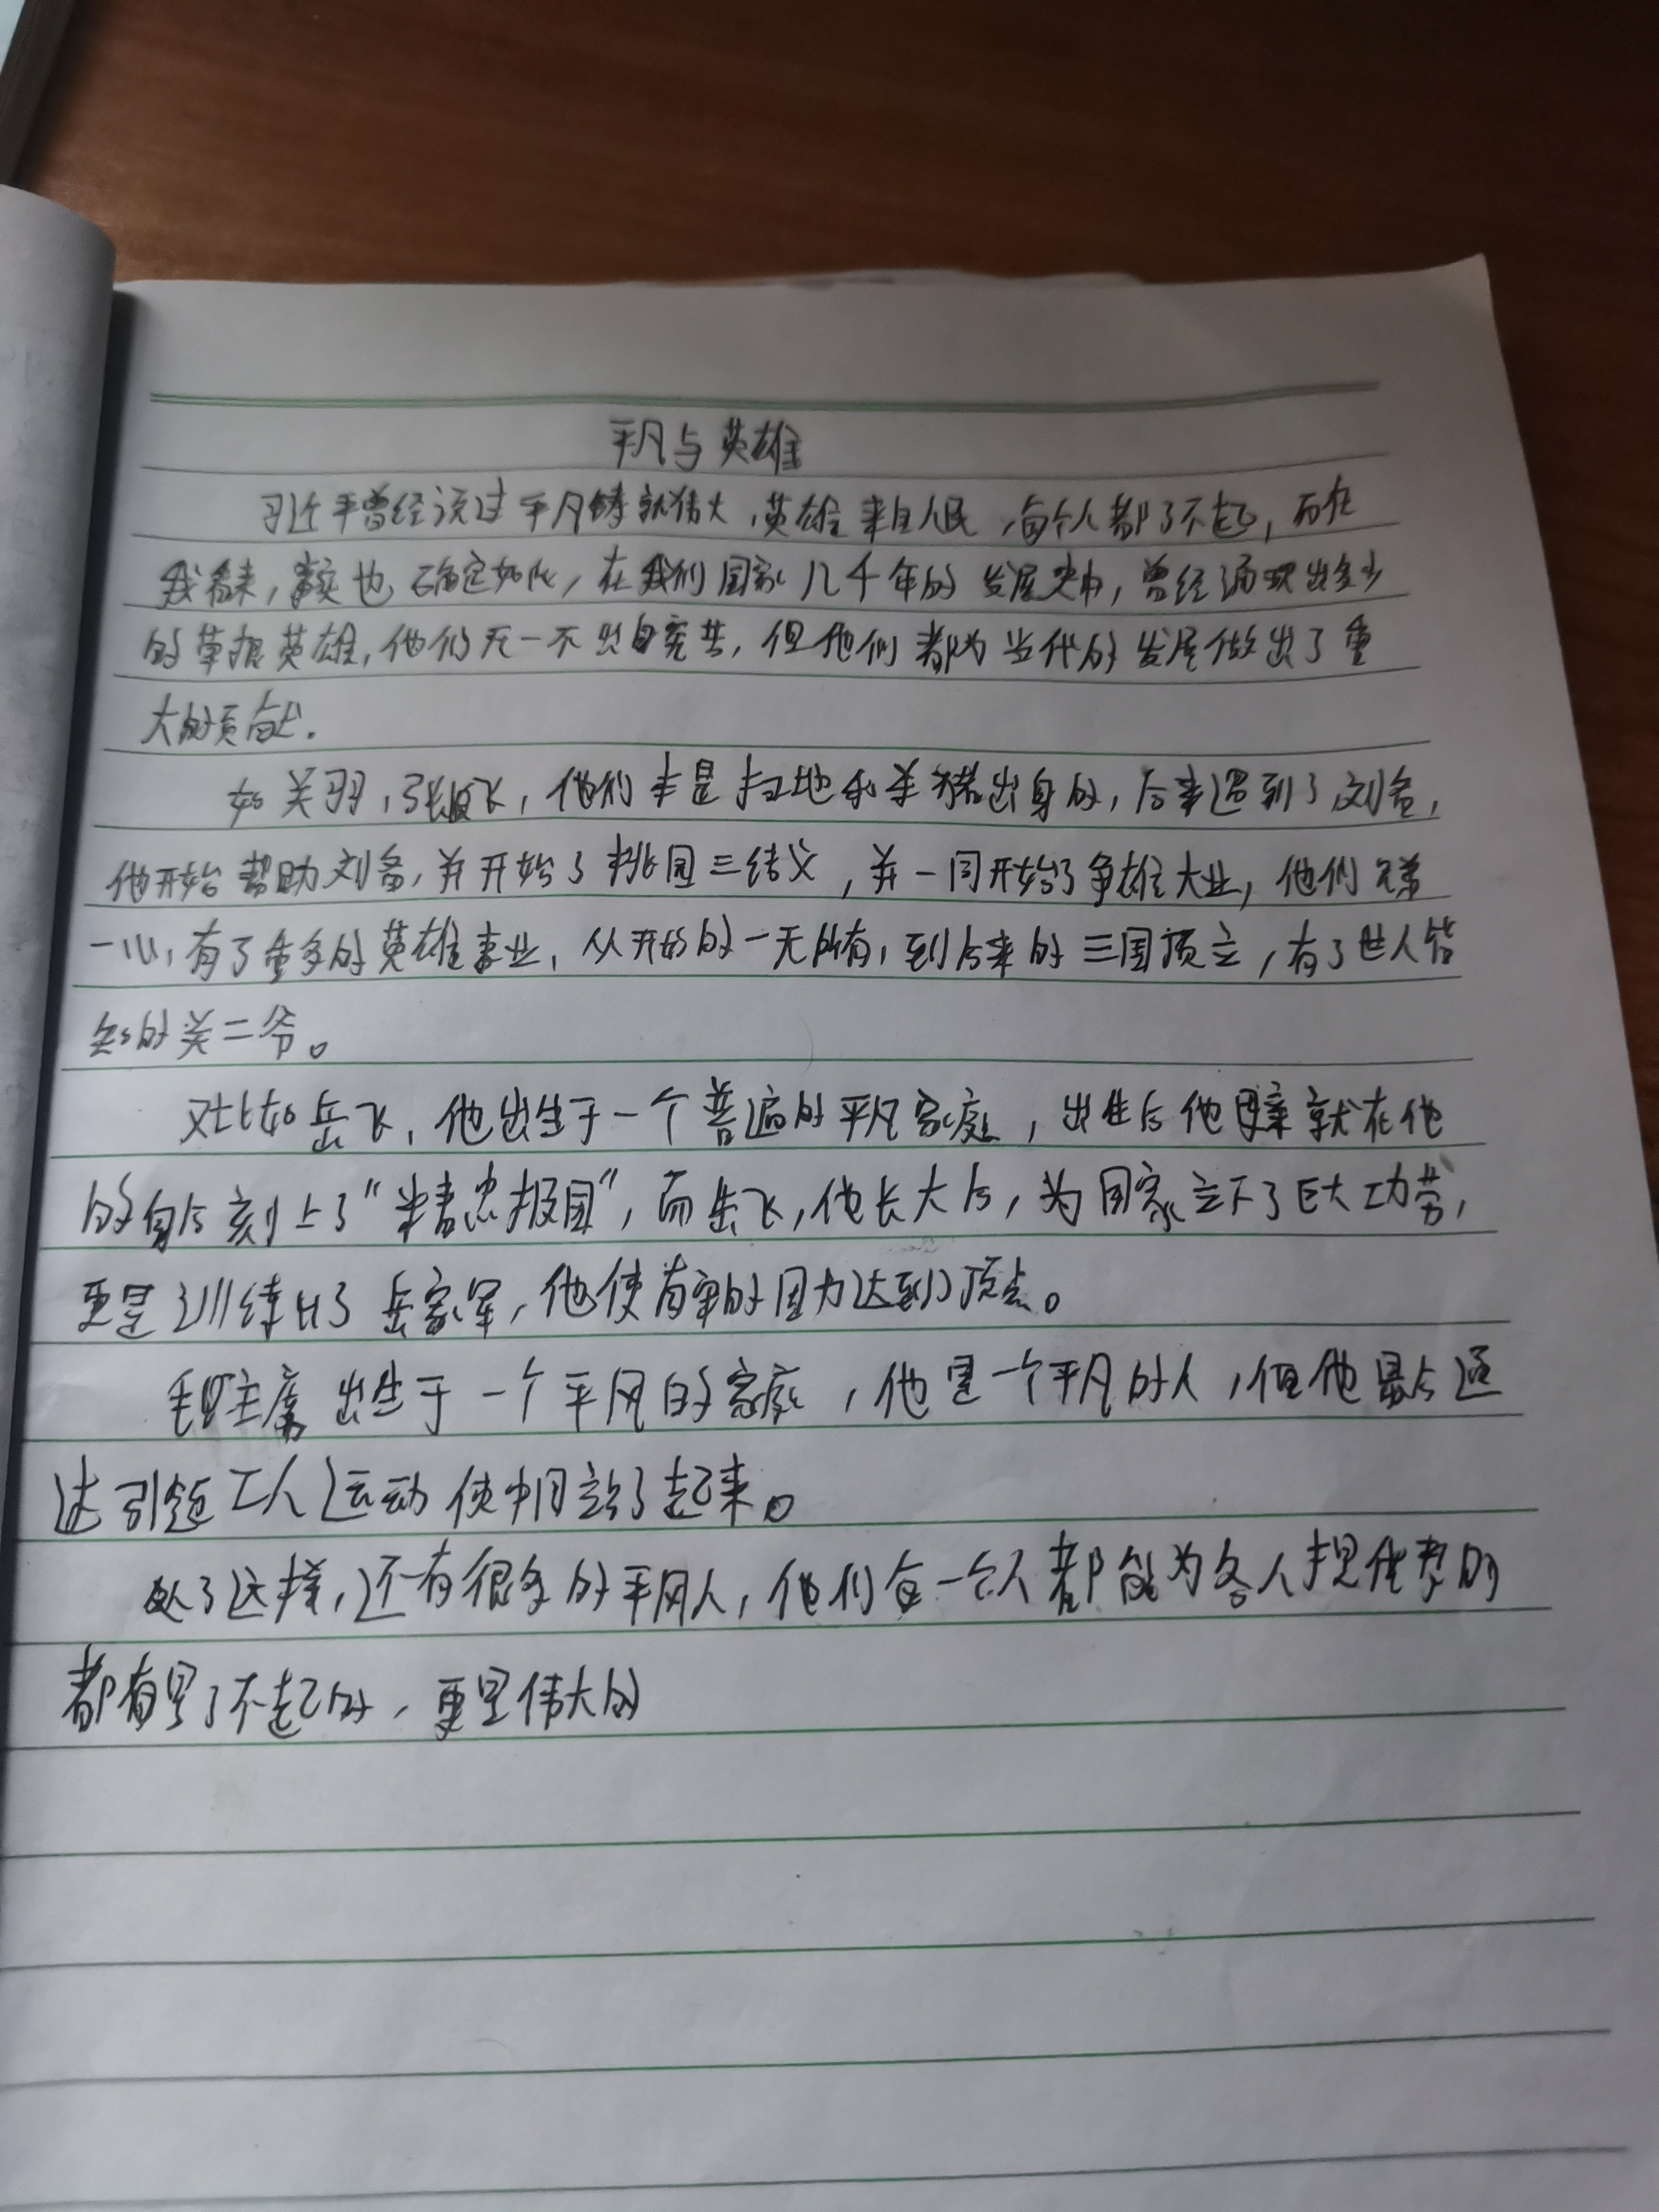 平凡与英雄
习近平曾经说过平凡铸就伟大,英雄来自人民,每个人都了不起,而在
我看来,事实也确定如此,在我们国家几千年的发展史中,曾经涌现出多少
的草根英雄,他们无一不出自穷苦,但他们都为当代的发展做出了重
大的贡献.
如关羽,张飞,他们本是扫地和杀猪出身的,后来遇到了刘备,
他开始帮助刘备,并开始了桃园三结义,并一同开始了争雄大业,他们兄弟
一心,有了更多的英雄事业,从开始的一无所有,到后来的三国顶立,有了世人皆
知的关二爷。
对比如岳飞,他出生于一个普遍的平凡家庭,出生后他母亲就在他
的身后刻上了"精忠报国",而岳飞,他长大后,为国家立下了巨大功劳,
更是训练出了岳家军,他使南宋的国力达到了顶点。
毛主席出生于一个平风的家庭,他是一个平凡的人,但他最后通
达引领工人运动使中国站了起来。
了这样,还有很多的平风人,他们每一个人都能为各人
都有是了不起的,更是伟大的